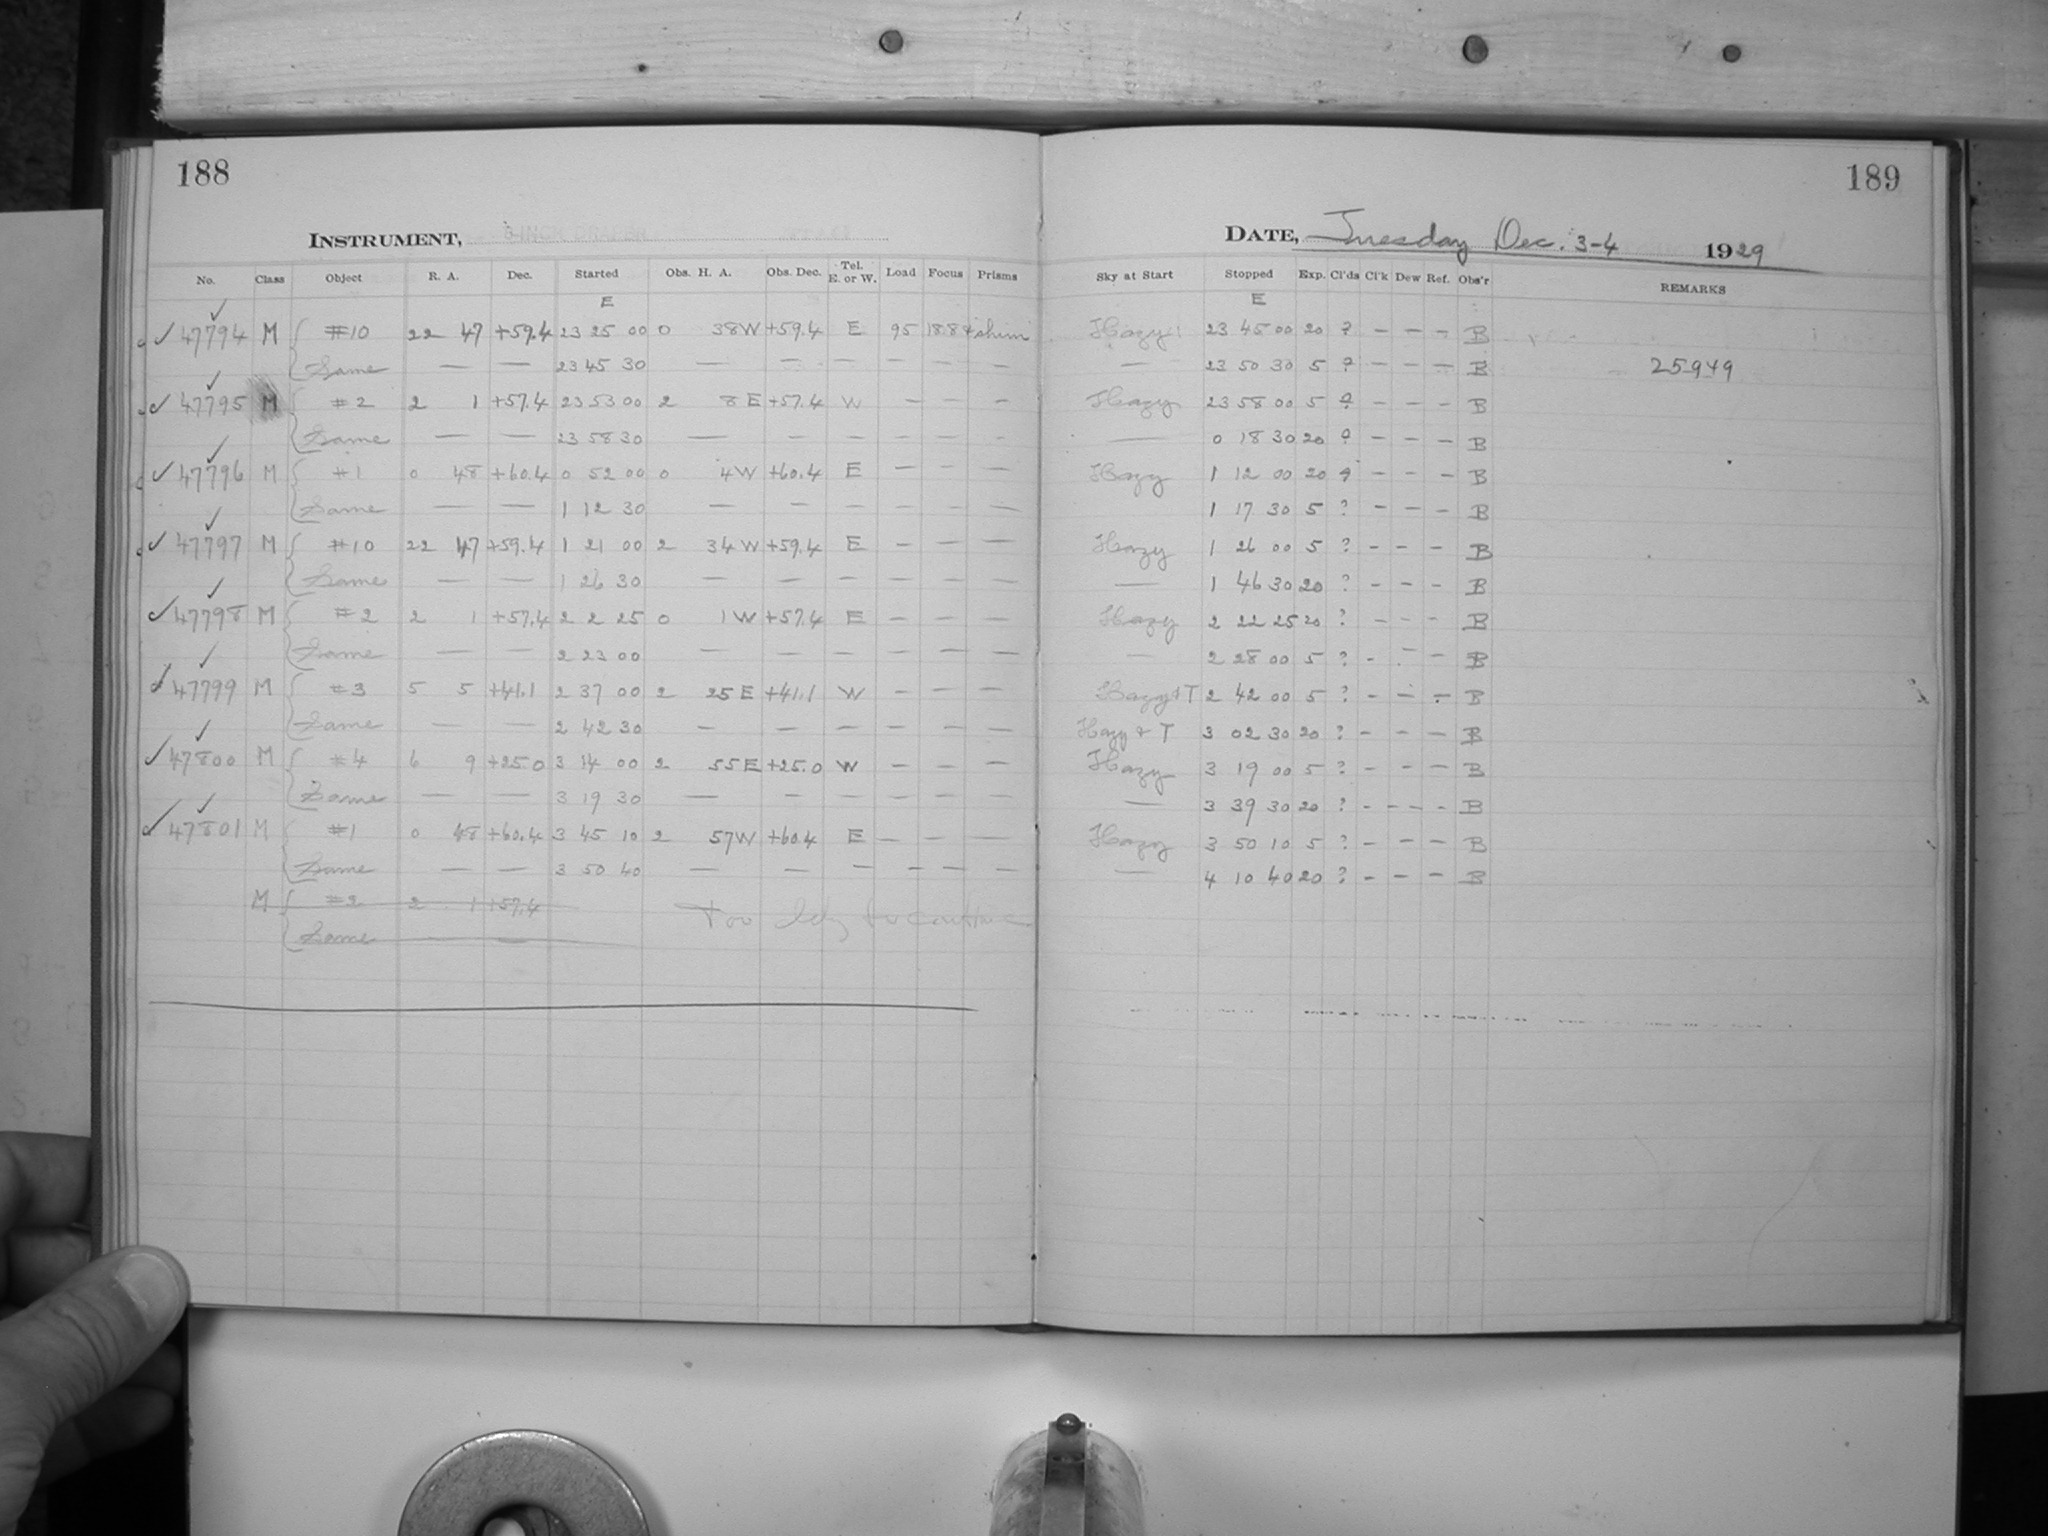 188
INSTRUMENT, 8-INCH DRAPER
No. Class Object R. A. Dec. Started Obs. H. A. Obs. Dec. Tel. E. or W. Load Focus Prisms
E
47794 M #10 22 47 +59.4 23 25 00 0 38 W +59.4 E 95 18.84 shim
Same — — 23 45 30 — — — — — —
47795 M #2 2 1 +57.4 23 53 00 2 8 E +57.4 W — — —
Same — — 23 58 30 — — — — — —
47796 M #1 0 48 +60.4 0 52 00 0 4 W +60.4 E — — —
Same — — 1 12 30 — — — — — —
47797 M #10 22 47 +59.4 1 21 00 2 34 W +59.4 E — — —
Same — — 1 26 30 — — — — — —
47798 M #2 2 1 +57.4 2 2 25 0 1 W +57.4 E — — —
Same — — 2 23 00 — — — — — —
47799 M #3 5 5 +41.1 2 37 00 2 25 E +41.1 W — — —
Same — — 2 42 30 — — — — — —
47800 M #4 6 9 +25.0 3 14 00 2 55 E +25.0 W — — —
Same — — 3 19 30 — — — — — —
47801 M #1 0 48 +60.4 3 45 10 2 57 W +60.4 E — — —
Same — — 3 50 40 — — — — — —
M #2 2 1 +57.4 Too to continue
Same — —
189
DATE, Tuesday Dec. 3-4 1929
Sky at Start Stopped Exp. Cl'ds Cl'k Dew Ref. Obs'r REMARKS
E
Hazy 23 45 00 20 ? — — — B
— 23 50 30 5 ? — — — B 25949
Hazy 23 58 00 5 ? — — — B
— 0 18 30 20 ? — — — B
Hazy 1 12 00 20 ? — — — B
1 17 30 5 ? — — — B
Hazy 1 26 00 5 ? — — — B
— 1 46 30 20 ? — — — B
Hazy 2 22 25 20 ? — — — B
— 2 28 00 5 ? — — — B
Hazy & T 2 42 00 5 ? — — — B
Hazy & T 3 02 30 20 ? — — — B
Hazy 3 19 00 5 ? — — — B
— 3 39 30 20 ? — — — B
Hazy 3 50 10 5 ? — — — B
— 4 10 40 20 ? — — — B